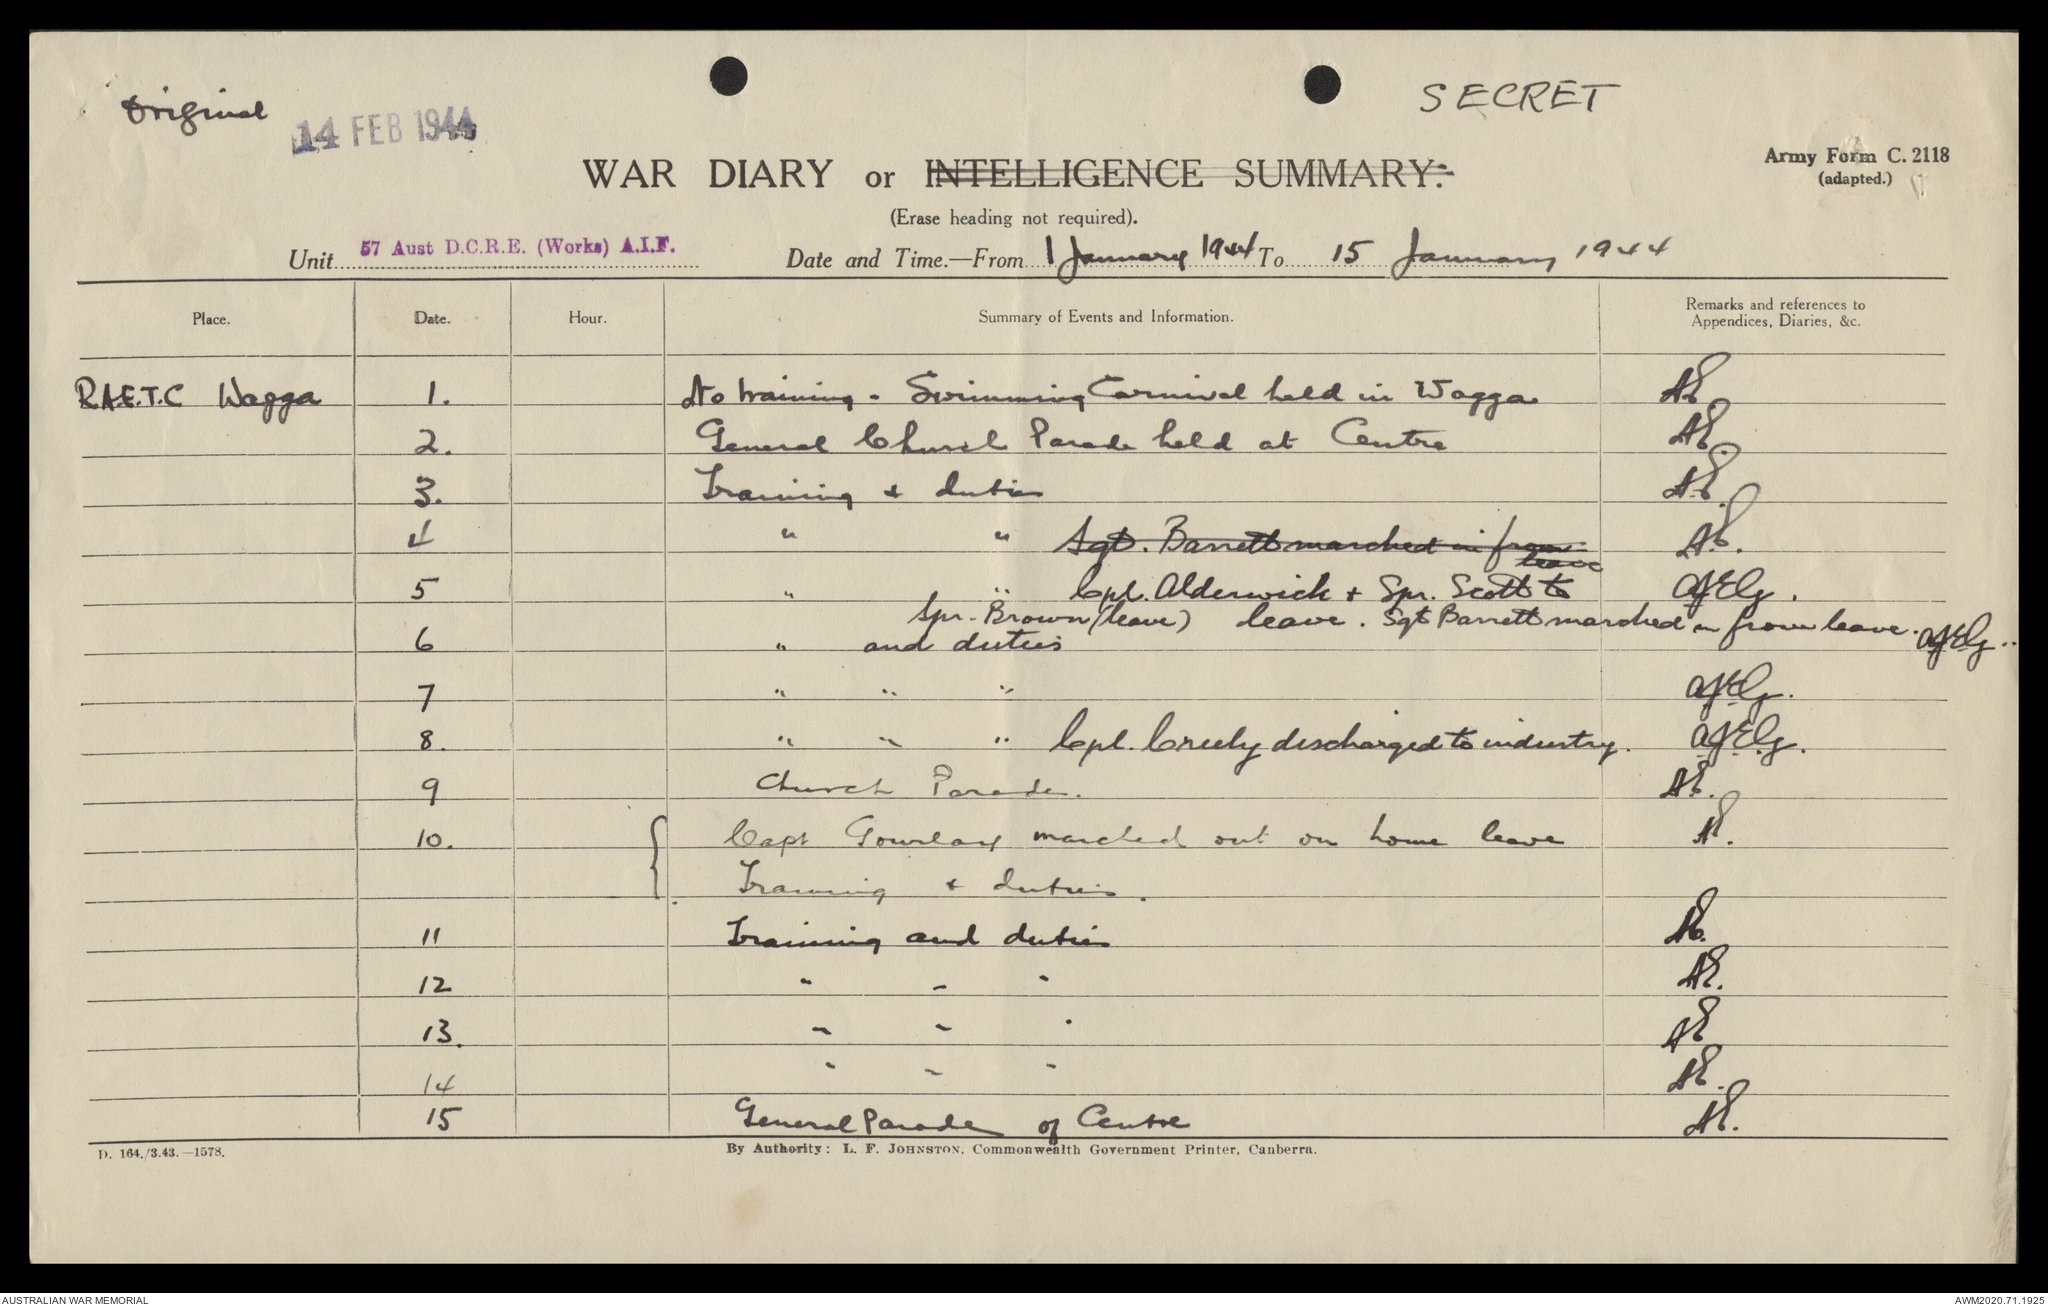 Original
14 FEB 1944
SECRET
Army Form C. 2118
(adapted.)
WAR DIARY or INTELLIGENCE SUMMARY.
(Erase heading not required).
Unit 57 Aust D.C.R.E. (Works) A.I.F. Date and Time.—From 1 January 1944 To 15 January 1944
Place. Date. Hour. Summary of Events and Information. Remarks and references to
Appendices, Diaries, &c.
R.A.E.T.C Wagga 1. No training - Swimming Carnival held in Wagga
2. General Church Parade held at Centre
3. Training & duties
4 " " Sgt. Barrett marched in from
leave
5 " " Cpl. Alderwick & Spr. Scott to
Spr. Brown (leave) leave. Sgt Barrett marched in from leave.
6 " and duties
7 " " "
8. " " " Cpl. Creely discharged to industry.
9 Church Parade.
10. Capt Gourlay marched out on home leave
Training & duties.
11 Training and duties
12 " " "
13. " " "
14 " " "
15 General Parade of Centre
D. 164./3.43.—1578.
By Authority: L. F. JOHNSTON, Commonwealth Government Printer, Canberra.
AUSTRALIAN WAR MEMORIAL
AWM2020.71.1925